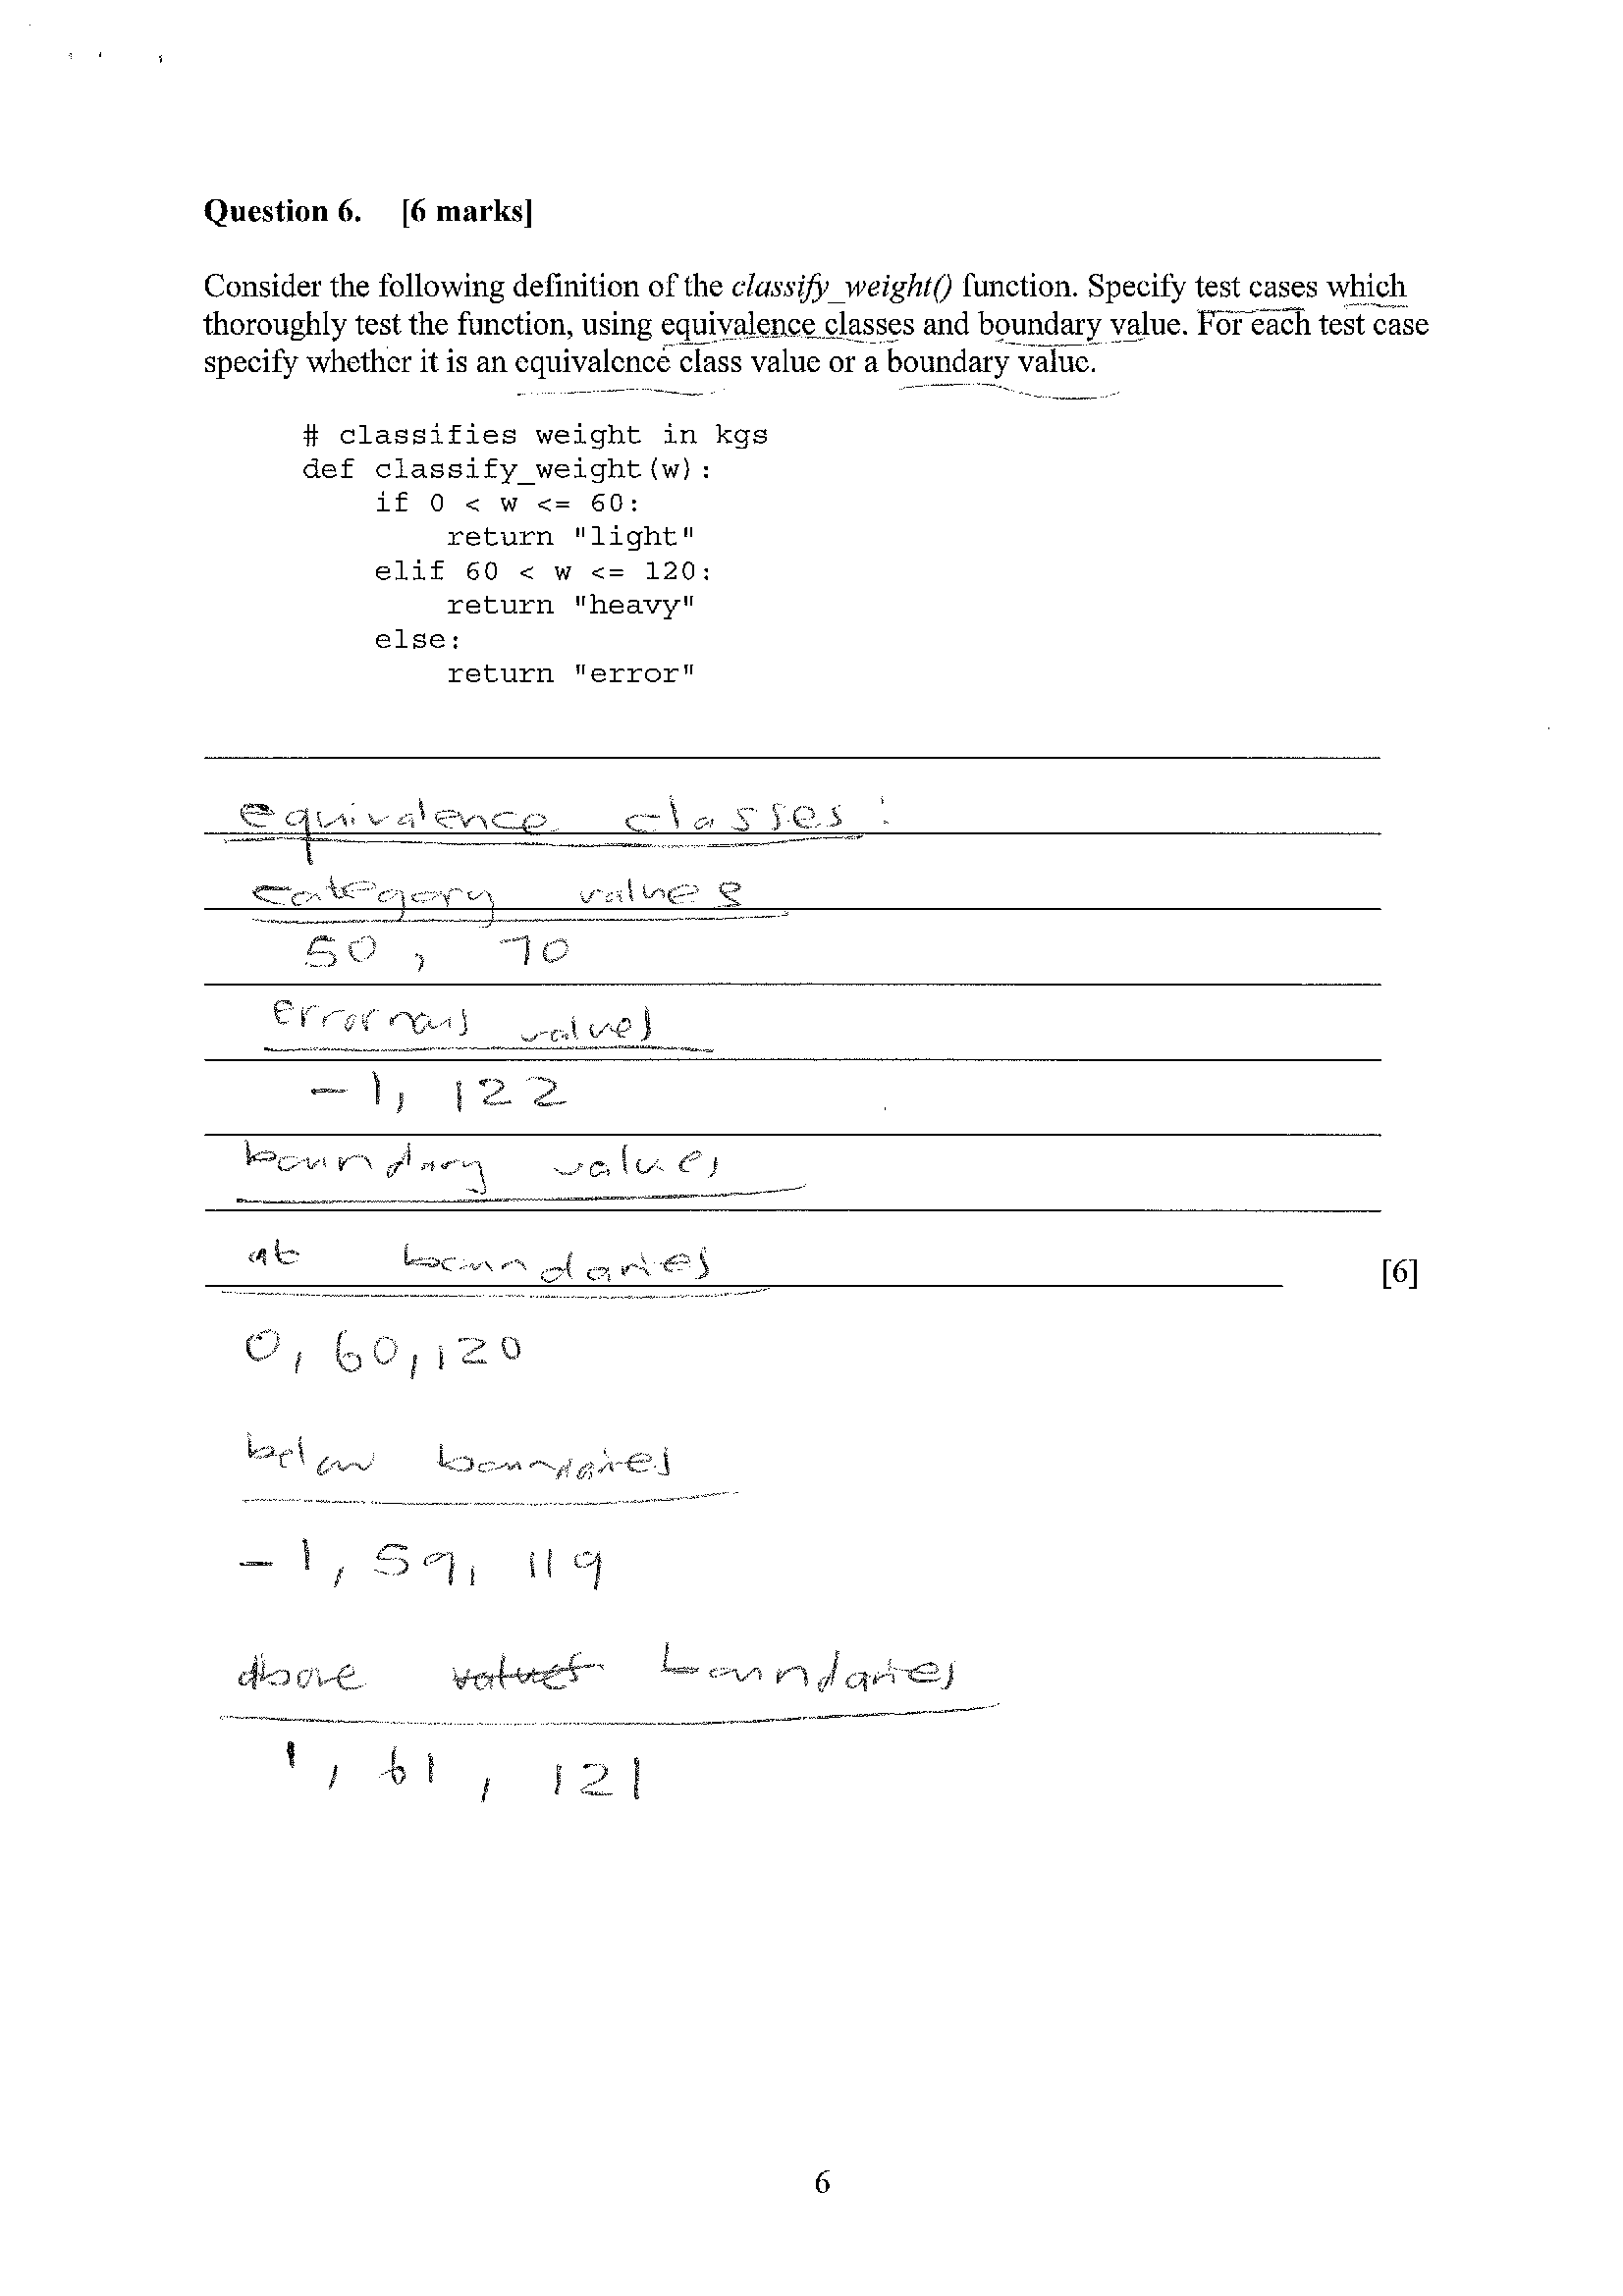 Question 6. [6 marks]
Consider the following definition of the classify_weight() function. Specify test cases which
thoroughly test the function, using equivalence classes and boundary value. For each test case
specify whether it is an equivalence class value or a boundary value.
# classifies weight in kgs
def classify_weight(w):
    if 0 < w <= 60:
        return "light"
    elif 60 < w <= 120:
        return "heavy"
    else:
        return "error"
equivalence classes:
category values
50, 70
Errornous values
-1, 122
boundary values
at boundaries
[6]
0, 60, 120
below boundaires
-1, 59, 119
above values boundaries
1, 61, 121
6